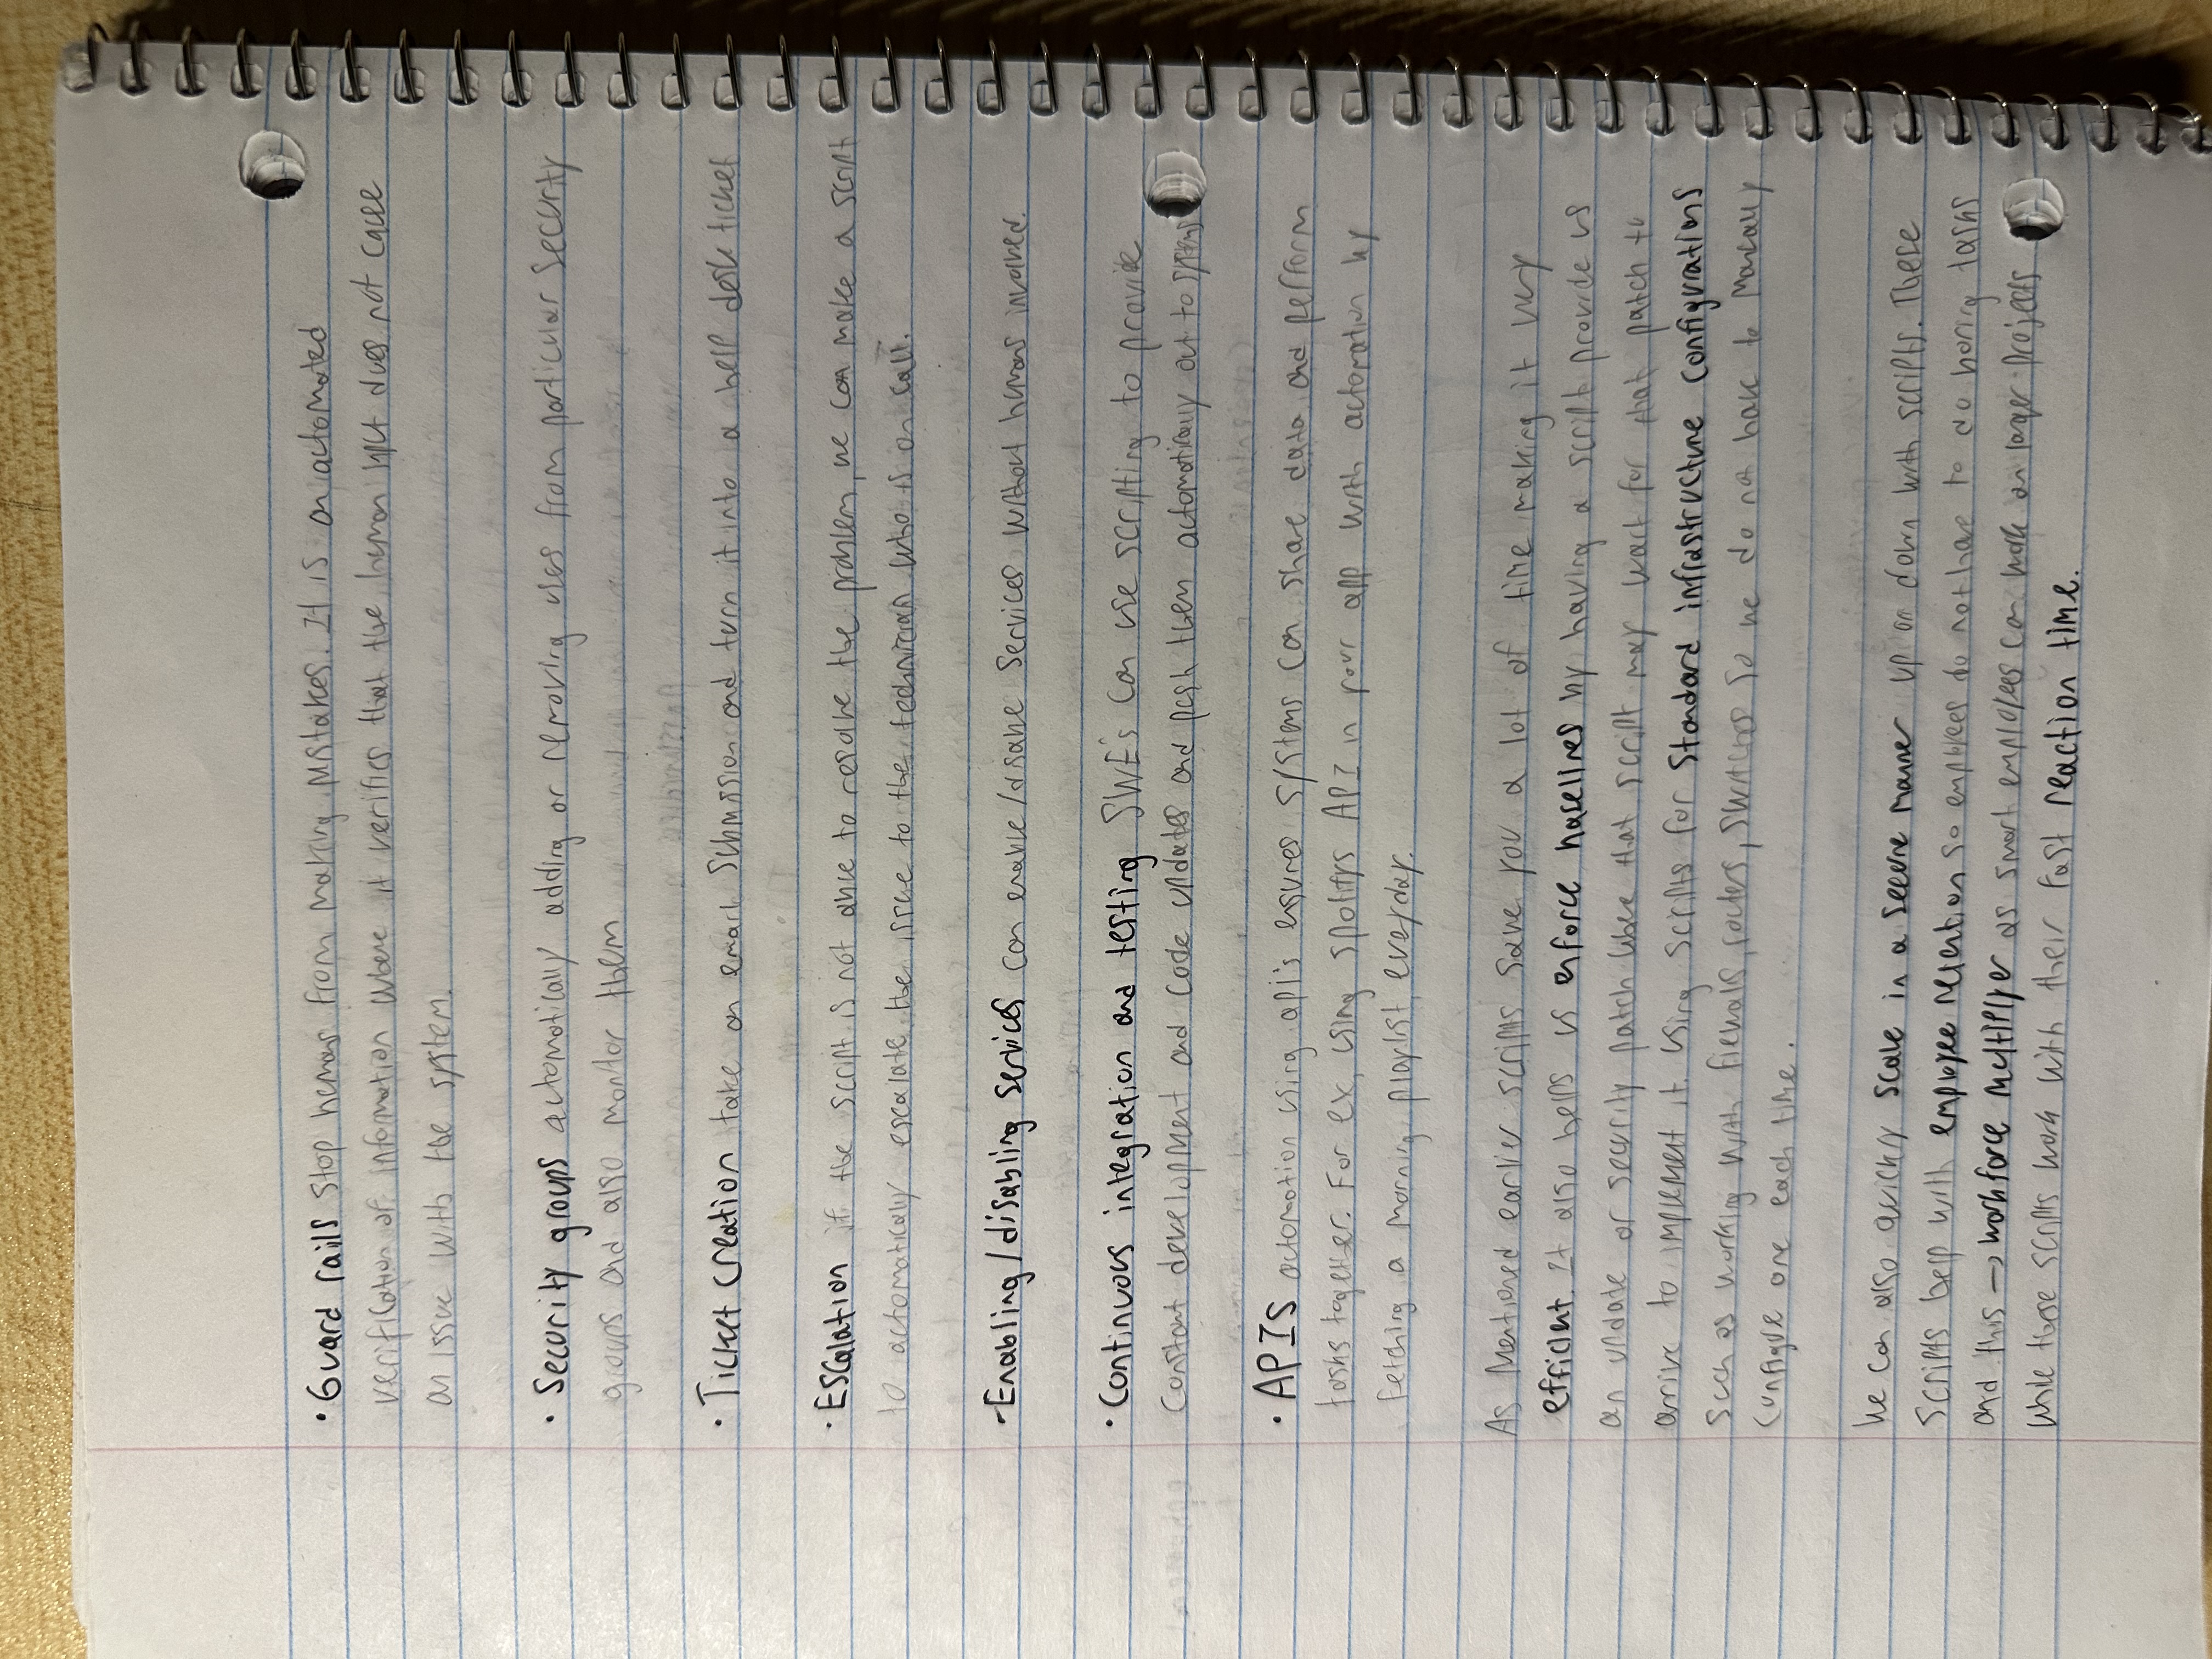 • Guard rails stop humans from making mistakes. It is an automated
verification of information where it verifies that the human input does not cause
an issue with the system.
• Security groups automatically adding or removing uses from particular security
groups and also monitor them
• Ticket creation take an email submission and turn it into a help desk ticket
• Escalation if the script is not able to resolve the problem, we can make a script
to automatically escalate the issue to the technician who is on call.
- Enabling/disabling services can enable/disable services without humans involved.
• Continuous integration and testing SWE's can use scripting to provide
constant development and code updates and push them automatically out to systems
• APIs automation using api's ensures systems can share data and perform
tasks together. For ex, using spotifys API in your app with automation by
fetching a morning playlist everyday.
As mentioned earlier scripts save you a lot of time making it very
efficient. It also helps us enforce baselines by having a script provide us
an update or security patch where that script may wait for that patch to
arrive to implement it. Using scripts for standard infrastructure configurations
such as working with firewalls, routers, switches so we do not have to manually
configure one each time.
We can also quickly scale in a secure manner up or down with scripts. These
scripts help with employee retention so employees do not have to do boring tasks
and this → workforce multiplyer as smart employees can work on larger projects
while these scripts work with their fast reaction time.